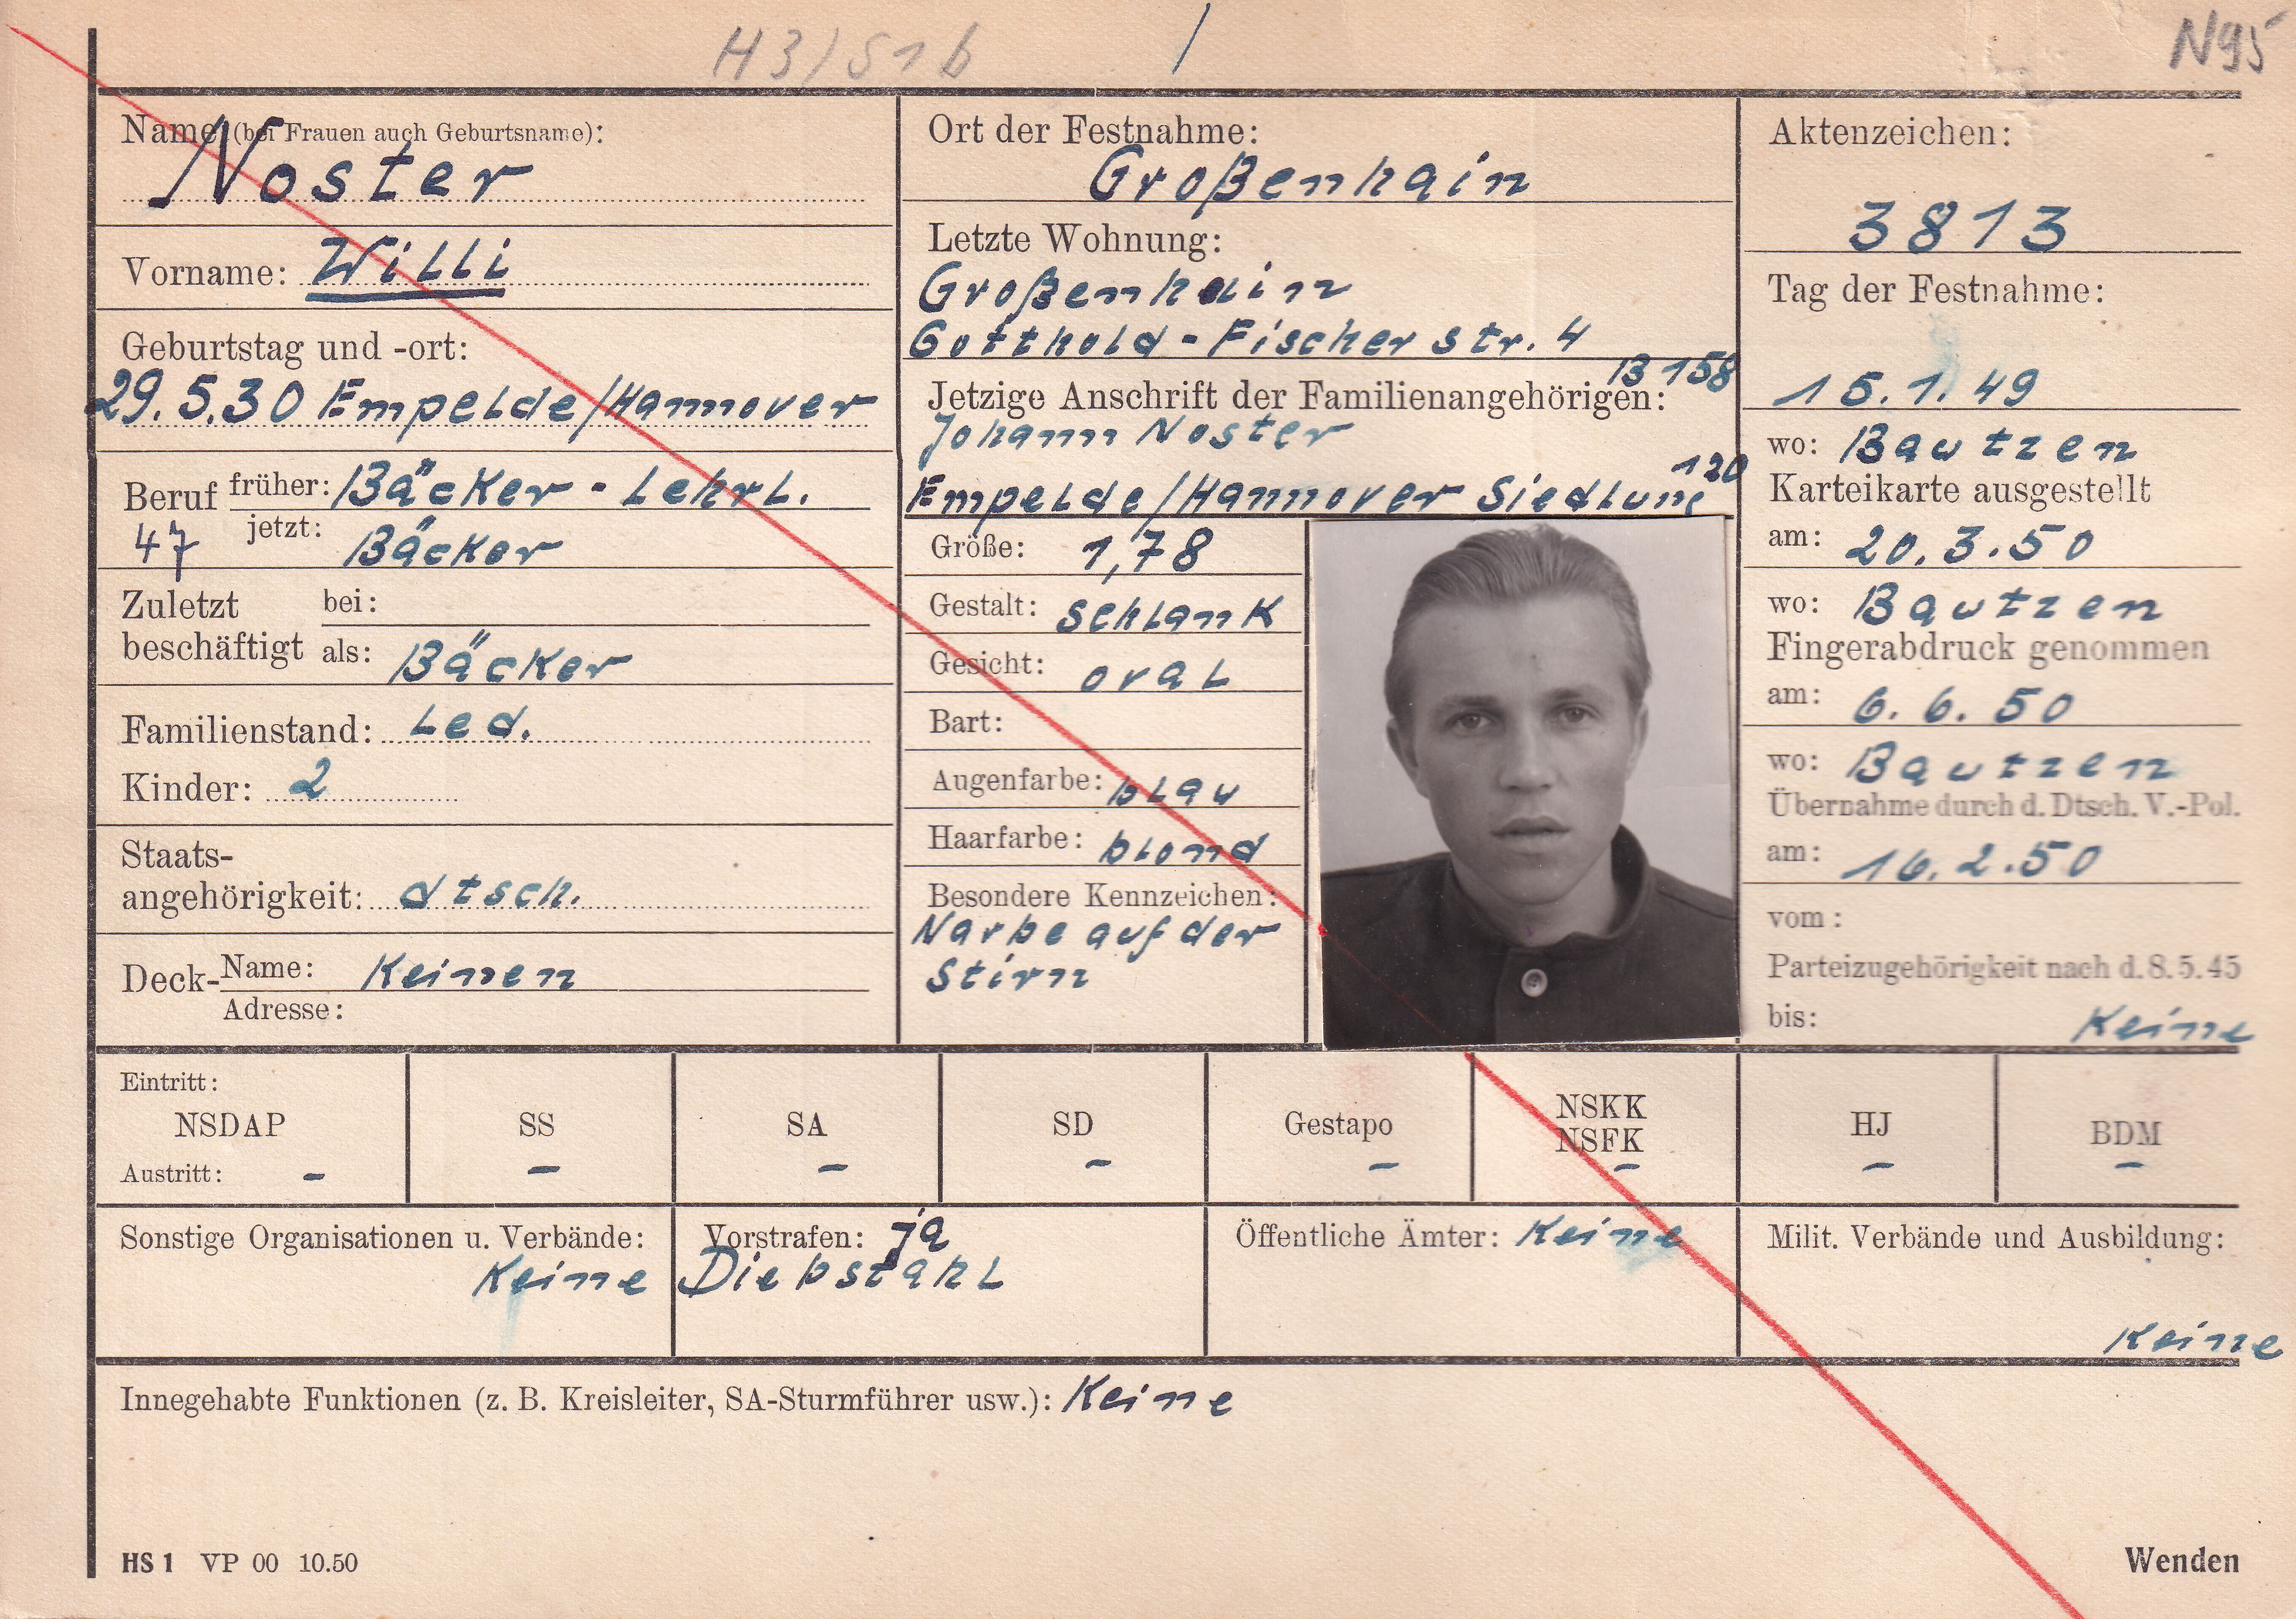 H3/51b /
N95
Name (bei Frauen auch Geburtsname):
Noster
Vorname: Willi
Geburtstag und -ort:
29.5.30 Empelde/Hannover
Beruf früher: Bäcker-Lehrl.
47 jetzt: Bäcker
Zuletzt beschäftigt bei:
als: Bäcker
Familienstand: Led.
Kinder: 2
Staats-
angehörigkeit: dtsch.
Deck- Name: Keinen
Adresse:
Ort der Festnahme:
Großenhain
Letzte Wohnung:
Großenhain
Gotthold-Fischer str. 4
B 158
Jetzige Anschrift der Familienangehörigen:
Johann Noster
Empelde/Hannover Siedlung 120
Größe: 1,78
Gestalt: schlank
Gesicht: oval
Bart:
Augenfarbe: blau
Haarfarbe: blond
Besondere Kennzeichen:
Narbe auf der
Stirn
Aktenzeichen:
3813
Tag der Festnahme:
15.1.49
wo: Bautzen
Karteikarte ausgestellt
am: 20.3.50
wo: Bautzen
Fingerabdruck genommen
am: 6.6.50
wo: Bautzen
Übernahme durch d. Dtsch. V.-Pol.
am: 16.2.50
vom:
Parteizugehörigkeit nach d. 8.5.45
bis: Keine
Eintritt:
NSDAP SS SA SD Gestapo NSKK NSFK HJ BDM
Austritt: - - - - - - - -
Sonstige Organisationen u. Verbände:
Keine
Vorstrafen: ja
Diebstahl
Öffentliche Ämter: Keine
Milit. Verbände und Ausbildung:
Keine
Innegehabte Funktionen (z. B. Kreisleiter, SA-Sturmführer usw.): Keine
HS 1 VP 00 10.50
Wenden